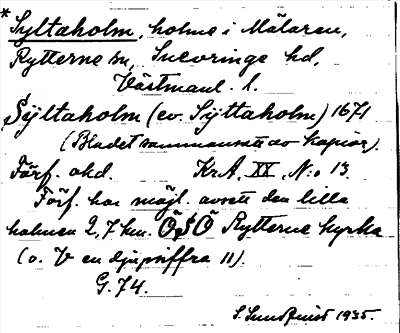 * Syltaholm, holme i Mälaren,
Rytterne sn, Snevringe hd,
Västmanl. l.
Sÿltaholm (ev. Sÿttaholm) 1671
(Bladet sammansatt av kopior).
Förf. okd. KrA. XX, N:o 13.
Förf. har möjl. avsett den lilla
holmen 2,7 km. ÖSÖ Rytterne kyrka
(o. V en djupsiffra 11).
G. 74.
S. Lundquist 1935.